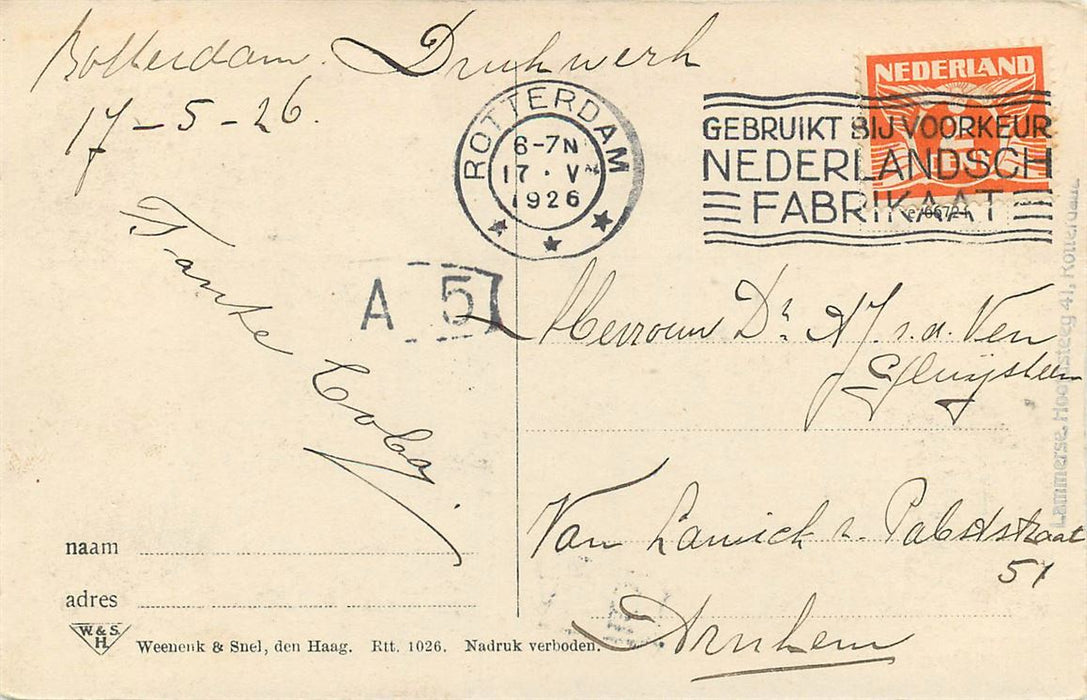 Rotterdam. Drukwerk
17-5-26.
ROTTERDAM
6-7N
17 · V
1926
GEBRUIKT BIJ VOORKEUR
NEDERLANDSCH
FABRIKAAT
NEDERLAND
Tante Coba.
A 5
Mevrouw Dr A.J. v.d. Ven
Van Lawick v. Pabststraat
51
Arnhem
naam
adres
W. & S.
H.
Weenenk & Snel, den Haag. Rtt. 1026. Nadruk verboden.
Lammerse, Hoofdsteeg 41, Rotterdam